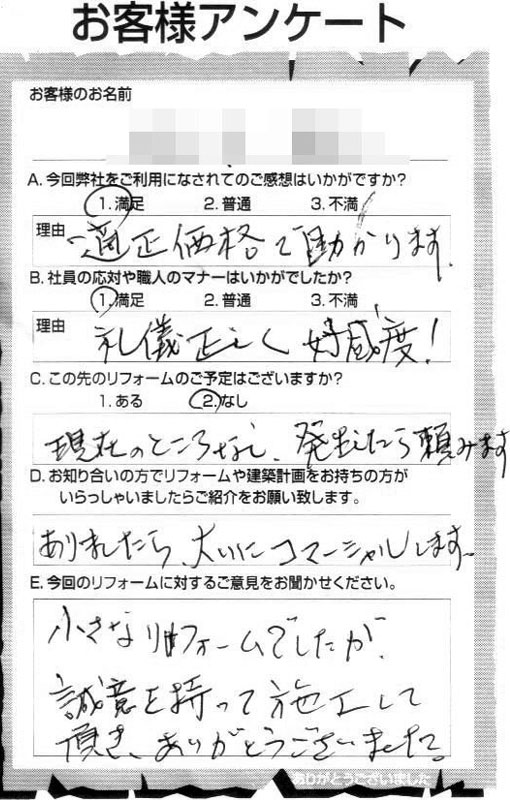 お客様アンケート
お客様のお名前
A. 今回弊社をご利用になされてのご感想はいかがですか?
1. 満足 2. 普通 3. 不満
理由 適正価格で助かります。
B. 社員の応対や職人のマナーはいかがでしたか?
1. 満足 2. 普通 3. 不満
理由 礼儀正しく好感度!
C. この先のリフォームのご予定はございますか?
1. ある 2. なし
現在のところなし、発生したら頼みます
D. お知り合いの方でリフォームや建築計画をお持ちの方が
いらっしゃいましたらご紹介をお願い致します。
ありましたら、大いにコマーシャルします。
E. 今回のリフォームに対するご意見をお聞かせください。
小さなリフォームでしたが、
誠意を持って施工して
頂き、ありがとうございました。
ありがとうございました